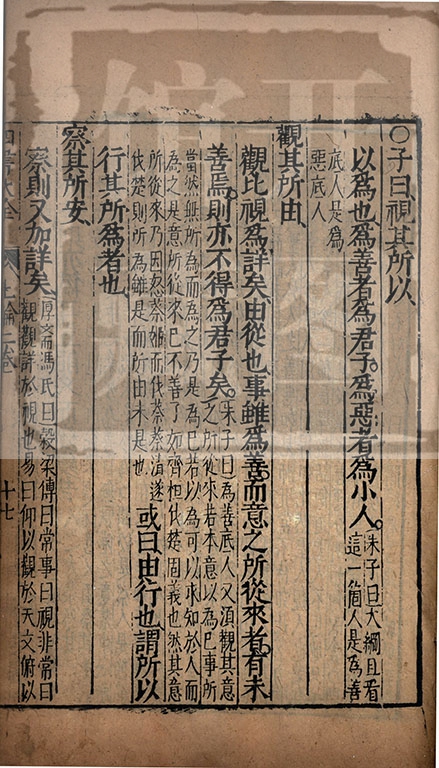 ○子曰視其所以
以爲也爲善者爲君子爲惡者爲小人朱子曰大綱且看這一箇人是爲善
底人是爲惡底人
觀其所由
觀比視爲詳矣由從也事雖爲善而意之所從來者有未
善焉則亦不得爲君子矣朱子曰爲善底人又須觀其意之所從來若本意以爲己事所
當然無所爲而爲之乃是爲己若以爲可以求知於人而爲之是意所從來已不善了如齊桓伐楚固義也然其意
所從來乃因怒蔡姬而伐蔡蔡潰遂伐楚則所爲雖是而所由未是也或曰由行也謂所以
行其所爲者也
察其所安
察則又加詳矣厚齋馮氏曰穀梁傳曰常事曰視非常曰觀觀詳於視也易曰仰以觀於天文俯以
四書大全 上論二卷 十七